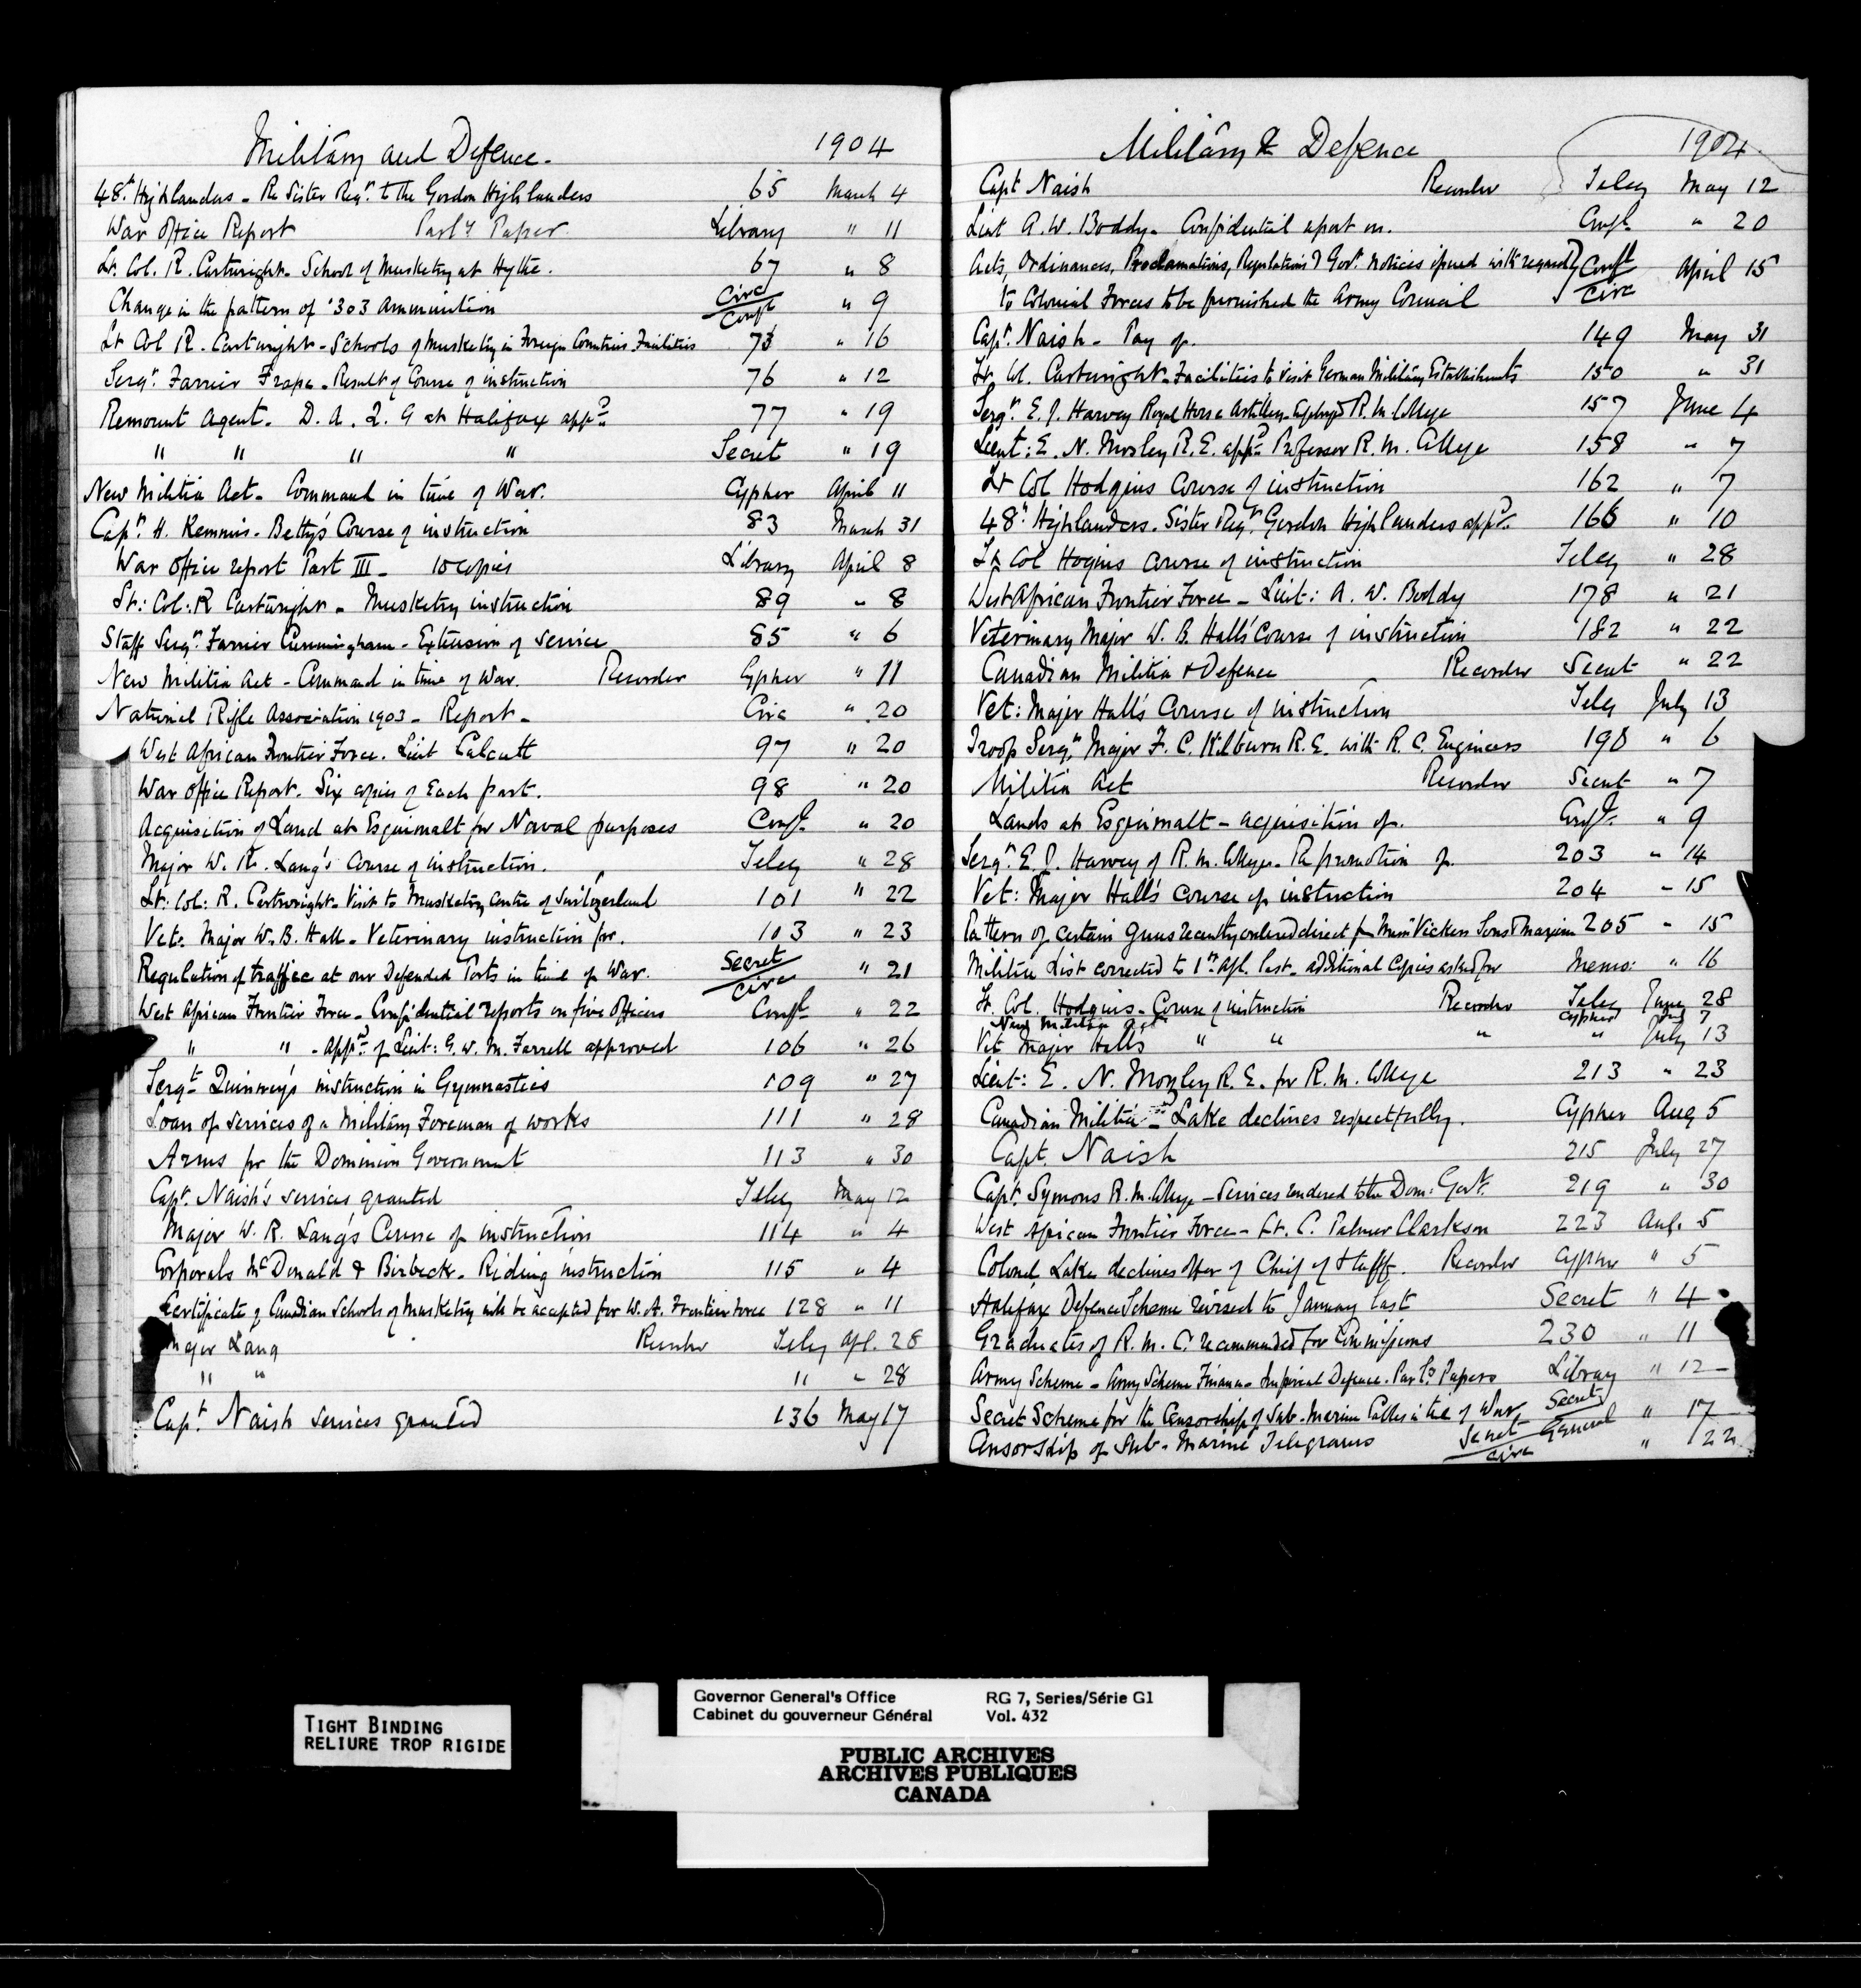 Military and Defence. 1904
48th Highlanders - Re Sister Regt. to the Gordon Highlanders 65 March 4
War Office Report Parly Paper Library " 11
Lt. Col. R. Cartwright - School of Musketry at Hythe. 67 " 8
Change in the pattern of .303 ammunition Circ Confl " 9
Lt Col R. Cartwright - Schools of Musketry in Foreign Countries Facilities 73 " 16
Sergt. Farrier Frape - Result of Course of instruction 76 " 12
Remount Agent. D. A. Q. G at Halifax appd. 77 " 19
" " " " Secret " 19
New Militia Act - Command in time of War. Cypher April 11
Capt. H. Kemmis-Betty's Course of instruction 83 March 31
War Office report Part III - 10 copies Library April 8
Lt: Col: R Cartwright - Musketry instruction 89 " 8
Staff Sergt. Farrier Cunningham - Extension of service 85 " 6
New Militia Act - Command in time of War. Recorder Cypher " 11
National Rifle Association 1903 - Report - Circ " 20
West African Frontier Force. Lieut Calcutt 97 " 20
War Office Report. Six copies of Each part. 98 " 20
Acquisition of Land at Esquimalt for Naval purposes Confl. " 20
Major W. R. Lang's Course of instruction. Teleg " 28
Lt: Col: R. Cartwright - Visit to Musketry Centre of Switzerland 101 " 22
Vet: Major W. B. Hall - Veterinary instruction for. 103 " 23
Regulation of traffic at our Defended Ports in time of War. Secret Circ " 21
West African Frontier Force - Confidential reports on five Officers Confl " 22
" " - Appt. of Lieut: G. W. M. Farrell approved 106 " 26
Sergt Quinney's instruction in Gymnastics 109 " 27
Loan of services of a Military Foreman of works 111 " 28
Arms for the Dominion Government 113 " 30
Capt. Naish's services granted Teleg May 12
Major W. R. Lang's Course of instruction 114 " 4
Corporals McDonald & Birbeck - Riding instruction 115 " 4
Certificate of Canadian Schools of Musketry will be accepted for W. A. Frontier Force 128 " 11
Major Lang Recorder Teleg Apl. 28
" " " " 28
Capt. Naish services granted 136 May 17
Military & Defence 1904
Capt Naish Recorder Teleg May 12
Lieut A. W. Boddy - Confidential report on. Confl " 20
Acts, Ordinances, Proclamations, Regulations & Govt. notices issued with regard Confl Circ April 15
to Colonial Forces to be furnished the Army Council
Capt. Naish - Pay of. 149 May 31
Lt. Col. Cartwright - Facilities to visit German Military Establishments 150 " 31
Sergt. E. J. Harvey Royal Horse Artillery - Employd R. M. College 157 June 4
Lieut: E. N. Mosley R. E. appd. Professor R. M. College 158 " 7
Lt Col Hodgins Course of instruction 162 " 7
48th Highlanders - Sister Regt. Gordon Highlanders appd. 166 " 10
Lt Col Hogins Course of instruction Teleg " 28
West African Frontier Force - Lieut: A. W. Boddy 178 " 21
Veterinary Major W. B. Hall's Course of instruction 182 " 22
Canadian Militia & Defence Recorder Secret " 22
Vet: Major Hall's Course of instruction Teleg July 13
Troop Sergt. Major F. C. Kilburn R. E. with R. C. Engineers 198 " 6
Militia Act Recorder Secret " 7
Lands at Esquimalt - acquisition of. Confl. " 9
Sergt. E. J. Harvey of R. M. College - Re promotion of. 203 " 14
Vet: Major Hall's Course of instruction 204 - 15
Pattern of certain guns recently ordered direct fm Messrs Vickers Sons & Maxim 205 - 15
Militia List corrected to 1st Apl. last - additional copies asked for Memo: " 16
Lt. Col. Hodgins - Course of instruction Recorder Teleg June 28
New Militia Act Cypher July 7
Vet Major Halls " " " " July 13
Lieut: E. N. Mozley R. E. for R. M. College 213 " 23
Canadian Militia - Lake declines respectfully. Cypher Aug 5
Capt. Naish 215 July 27
Capt. Symons R. M. College - Services rendered to the Dom: Govt. 219 " 30
West African Frontier Force - Lt. C. Palmer Clarkson 223 Aug. 5
Colonel Lake declines offer of Chief of Staff. Recorder Cypher " 5
Halifax Defence Scheme revised to January last Secret " 4
Graduates of R. M. C. recommended for Commissions 230 " 11
Army Scheme - Army Scheme Finance - Imperial Defence. Parly Papers Library " 12
Secret Scheme for the Censorship of Sub-Marine Cables in time of War, Secret General " 17
Censorship of Sub-Marine Telegrams Secret Circ " 22
TIGHT BINDING
RELIURE TROP RIGIDE
Governor General's Office RG 7, Series/Série G1
Cabinet du gouverneur Général Vol. 432
PUBLIC ARCHIVES
ARCHIVES PUBLIQUES
CANADA